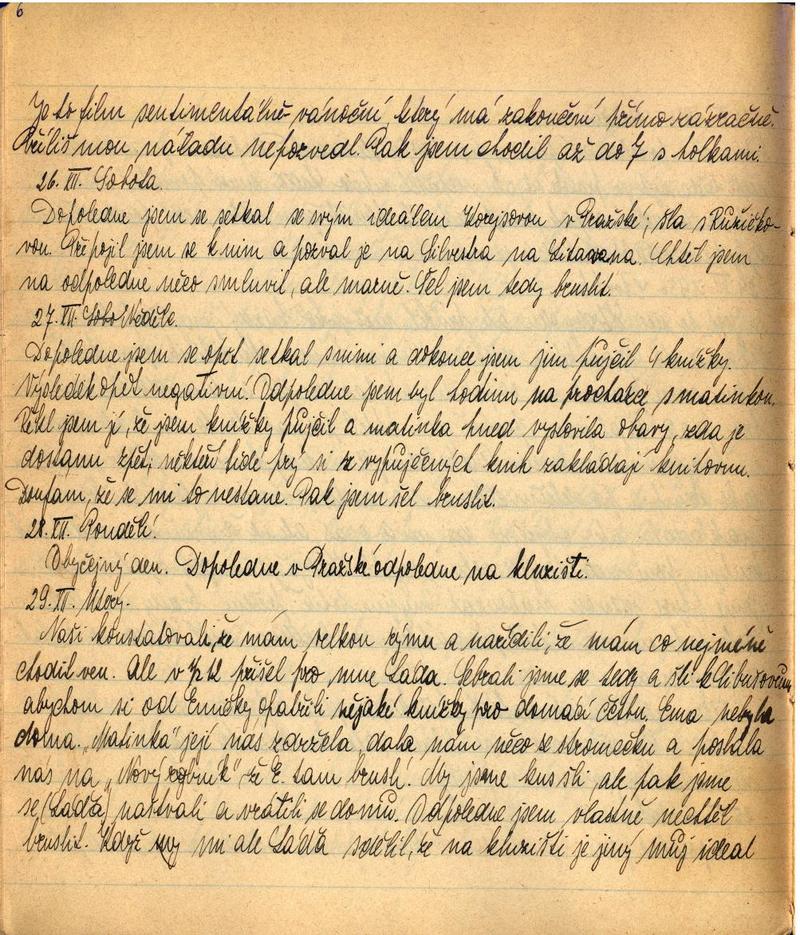 6
Je to film sentimentálně-vánoční, který má zakončení přímo zázračné.
Příliš mou náladu nepozvedl. Pak jsem chodil až do 7 s holkami.
26. XII. Sobota.
Dopoledne jsem se setkal se svým ideálem Korejsovou v Pražské; šla s Růžičko-
vou. Připojil jsem se k nim a pozval je na Silvestra na Litavana. Chtěl jsem
na odpoledne něco smluvit, ale marně. Šel jsem tedy bruslit.
27. XII. Neděle.
Dopoledne jsem se opět setkal s nimi a dokonce jsem jim půjčil 4 knížky.
Výsledek opět negativní. Odpoledne jsem byl hodinu na procházce s matinkou.
Řekl jsem jí, že jsem knížky půjčil a matinka hned vyslovila obavy, zda je
dostanu zpět; někteří lidé prý si z vypůjčených knih zakládají knihovnu.
Doufám, že se mi to nestane. Pak jsem šel bruslit.
28. XII. Pondělí.
Obyčejný den. Dopoledne v Pražské odpoledne na kluzišti.
29. XII. Úterý.
Naši konstatovali, že mám velkou rýmu a nařídili, že mám co nejméně
chodit ven. Ale v ½ 12 přišel pro mne Láďa. Sebrali jsme se tedy a šli k
abychom si od Emičky opatřili nějaké knížky pro domácí četbu. Ema nebyla
doma. „Matinka" její nás zdržela, dala nám něco se stromečku a poslala
nás na „Nový rybník" že E. tam bruslí. My jsme kus šli, ale pak jsme
se (Láďa) naštvali a vrátili se domů. Odpoledne jsem vlastně nechtěl
bruslit. Když mi ale Láďa sdělil, že na kluzišti je jiný můj ideal